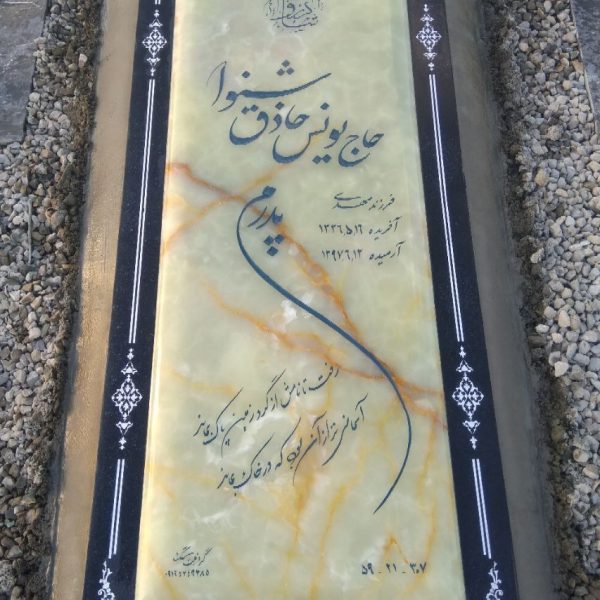 حاج یونس حاذق شنوا
فرزند مهدی
آفریده ۱۳۳۶٫۵٫۱۶
آرمیده ۱۳۹۷٫۶٫۱۲
پدرم
رفت تا نامش از گرد زمین پاک بماند
آسمانی تر از آن بود که در خاک بماند
۵۹ - ۲۱ - ۳۰۷